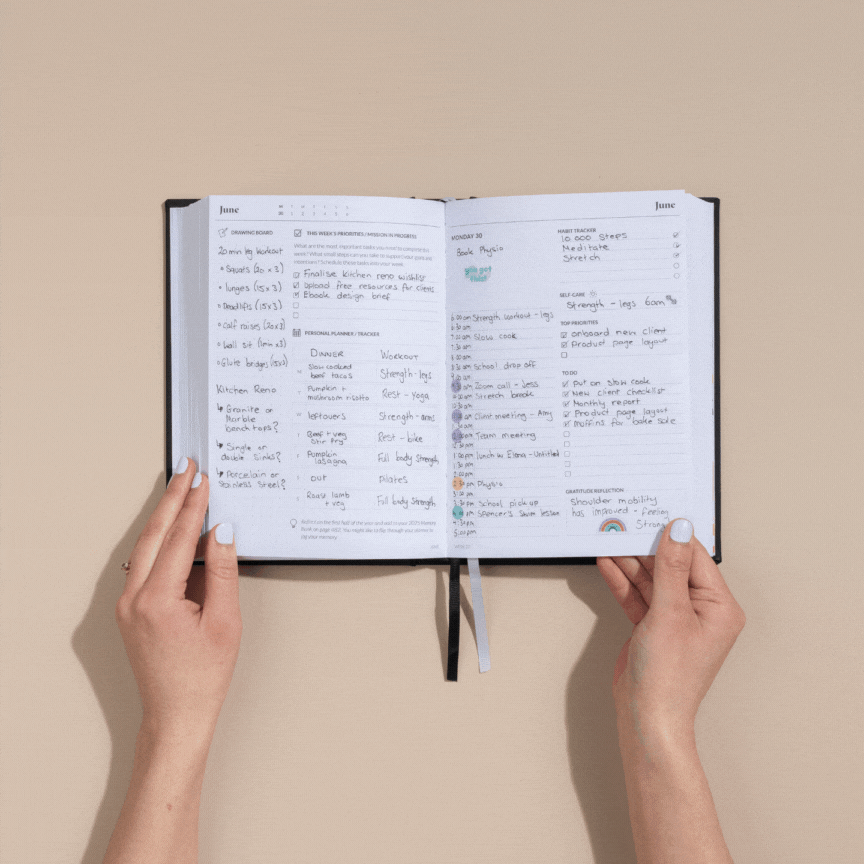 June
DRAWING BOARD
20 min leg workout
Squats (20 x 3)
lunges (15x3)
Deadlifts (15x3)
Calf raises (20x3)
Wall sit (1min x3)
Glute bridges (15x3)
Kitchen Reno
Granite or
Marble
benchtops?
Single or
double sinks?
Porcelain or
Stainless Steel?
THIS WEEK'S PRIORITIES / MISSION IN PROGRESS
What are the most important tasks you need to complete this
week? What small steps can you take to support your goals and
intentions? Schedule these tasks into your week.
Finalise kitchen reno wishlist
Upload free resources for clients
Ebook design brief
PERSONAL PLANNER / TRACKER
DINNER WORKOUT
Slow cooked
beef tacos
Strength-legs
Pumpkin +
mushroom risotto
Rest - yoga
leftovers Strength-arms
Beef + veg
Stir fry
Rest - bike
Pumpkin
lasagna
Full body strength
out pilates
Roast lamb
+ veg
Full body strength
June
MONDAY 30
Book Physio
6:00 am Strength workout - legs
6:30 am
7:00 am Slow cook
7:30 am
8:00 am
8:30 am School drop off
9:00 am
Zoom call - Jess
Stretch break
Client meeting - Amy
Team meeting
1:00 pm lunch w Elana - Untitled
1:30 pm
2:00 pm
Physio
3:00 pm
3:30 pm School pick up
Spencer's swim lesson
4:30 pm
5:00 pm
HABIT TRACKER
10 000 Steps
Meditate
Stretch
SELF-CARE
Strength - legs 6am
TOP PRIORITIES
onboard new client
Product page layout
TO DO
Put on slow cook
New client checklist
Monthly report
Product page layout
Muffins for bake sale
GRATITUDE REFLECTION
Shoulder mobility
has improved - feeling
Strong